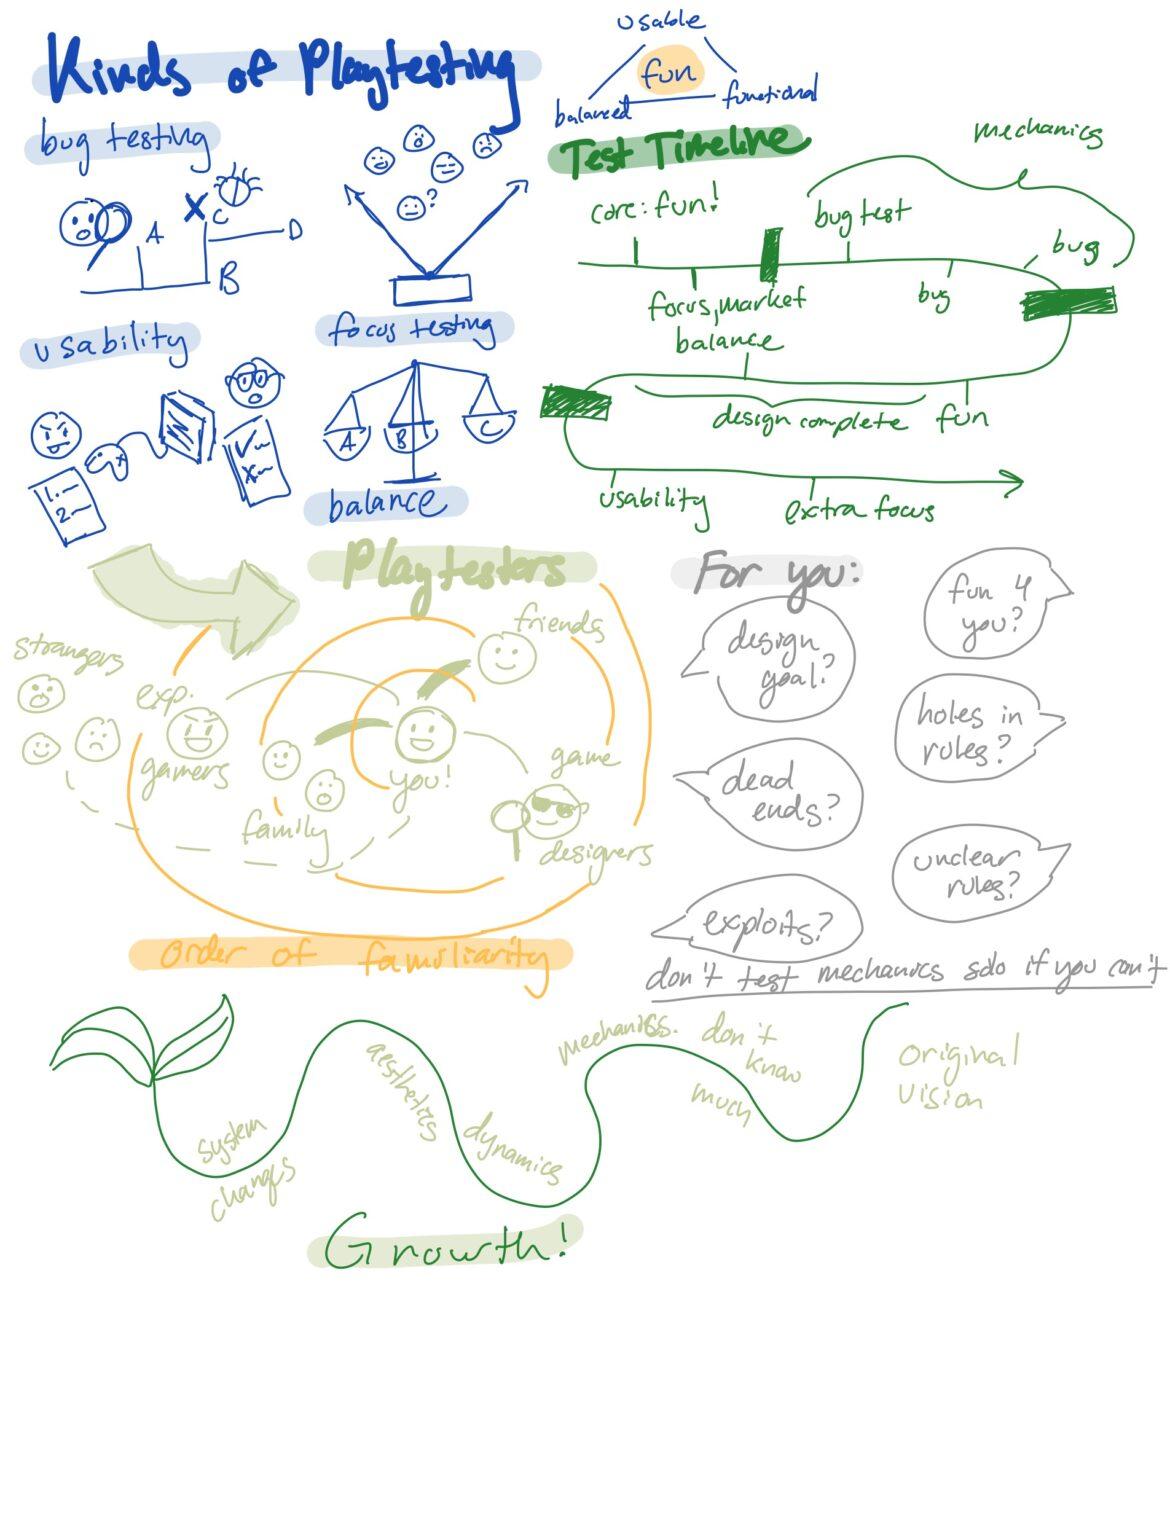 Kinds of Playtesting
usable
fun
balanced
functional
bug testing
A
X
C
D
B
?
usability
focus testing
1.
2
A
B
C
balance
Test Timeline
mechanics
core: fun!
bug test
bug
focus, market
bug
balance
design complete
fun
usability
extra focus
Playtesters
strangers
friends
exp.
gamers
you!
game
designers
family
order of familiarity
For you:
fun 4
you?
design
goal?
holes in
rules?
dead
ends?
unclear
rules?
exploits?
don't test mechanics solo if you can't
system
changes
aesthetics
dynamics
mechanics.
don't
know
much
original
vision
Growth!